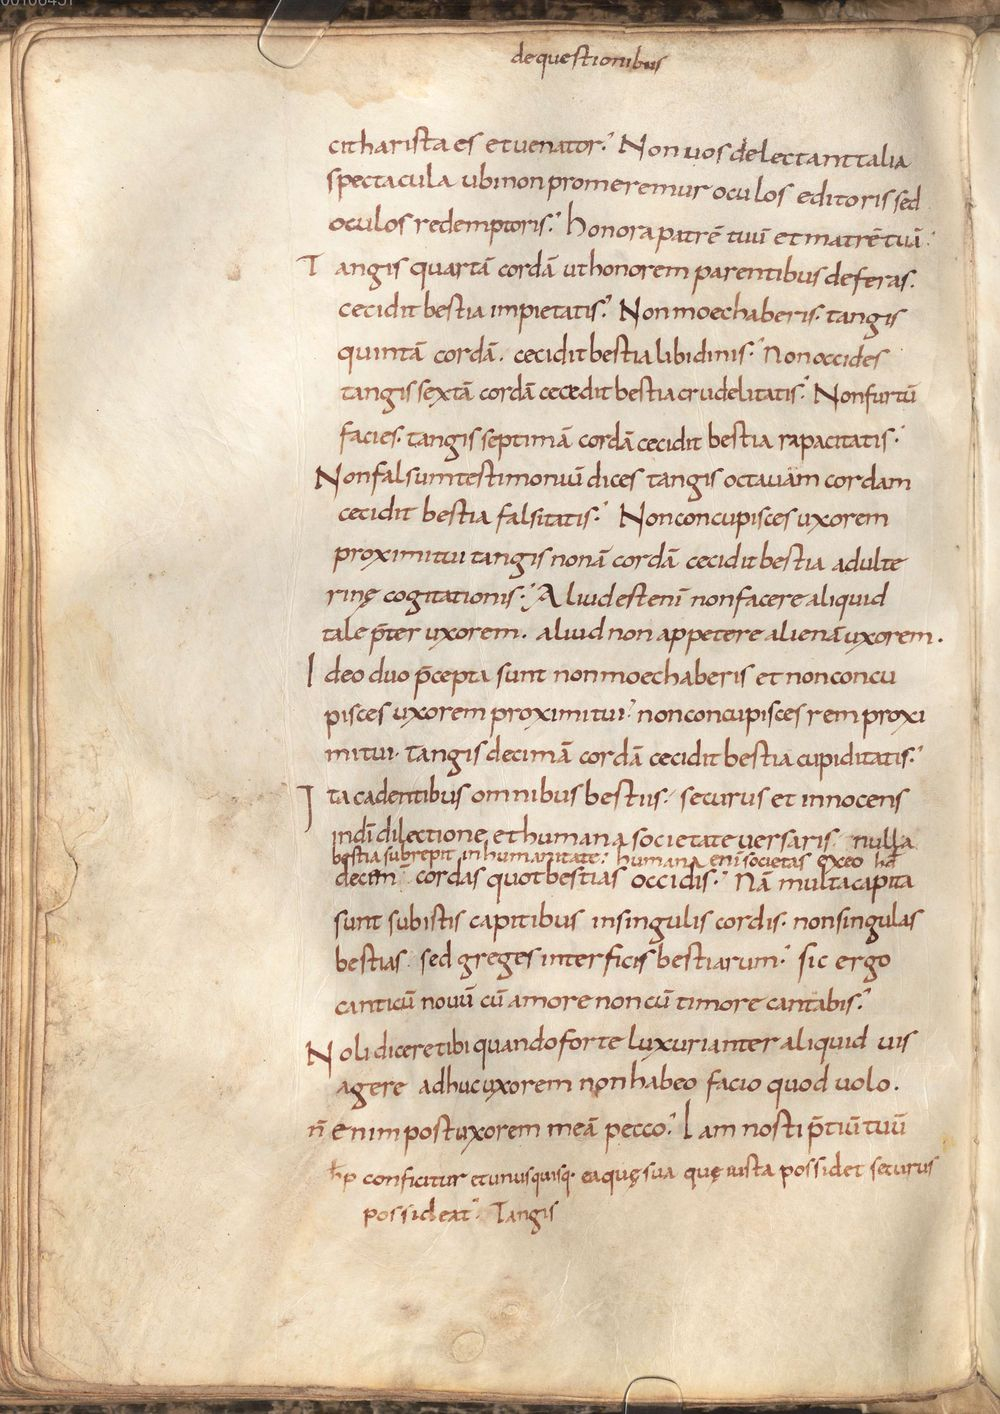 de questionibus
citharista es et uenator. Non uos delectant talia
spectacula ubi non promeremur oculos editoris sed
oculos redemptoris. honora patrē tuū et matrē tuā.
Tangis quartā cordā ut honorem parentibus deferas.
cecidit bestia impietatis. Non moechaberis. tangis
quintā cordā. cecidit bestia libidinis. Non occides
tangis sextā cordā cecedit bestia crudelitatis. Non furtū
facies. tangis septimā cordā cecidit bestia rapacitatis.
Non falsum testimoniū dices tangis octauam cordam
cecidit bestia falsitatis. Non concupisces uxorem
proximi tui tangis nonā cordā cecidit bestia adulte
rinę cogitationis. Aliud est enī non facere aliquid
tale p̄ter uxorem. aliud non appetere alienā uxorem.
Ideo duo p̄cepta sunt non moechaberis et non concu
pisces uxorem proximi tui. non concupisces rem proxi
mi tui. tangis decimā cordā cecidit bestia cupiditatis.
Ita cadentibus omnibus bestiis. securus et innocens
in dī dilectione et humana societate uersaris. nulla
bestia subrepit in humanitate. humana enī societas ex eo hd̄
decim cordas quot bestias occidis. Nā multa capita
sunt sub istis capitibus in singulis cordis. non singulas
bestias sed greges interficis bestiarum. sic ergo
canticū nouū cū amore non cū timore cantabis.
Noli dicere tibi quando forte luxurianter aliquid uis
agere adhuc uxorem non habeo facio quod uolo.
n̄ enim post uxorem meā pecco. Iam nosti p̄tiū tuū
hp conficitur et unusquisq. ea quę sua quę iusta possidet securus
possideat. Tangis